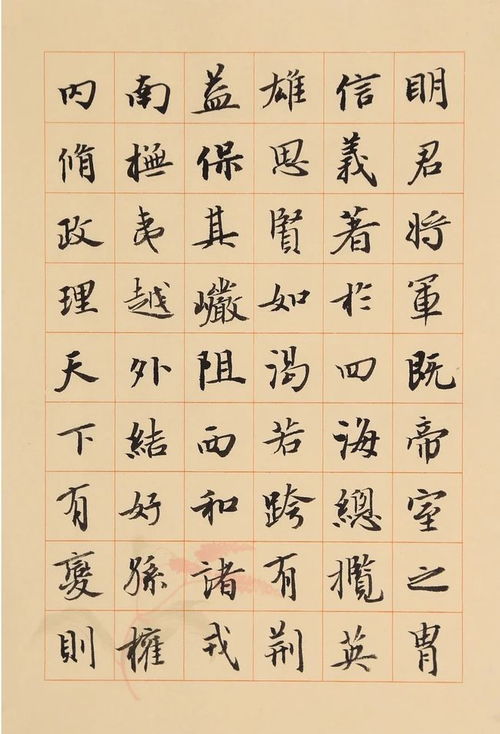 明君將軍既帝室之胄
信義著於四海總攬英
雄思賢如渴若跨有荆
益保其巗阻西和諸戎
南橅夷越外結好孫權
内脩政理天下有變則